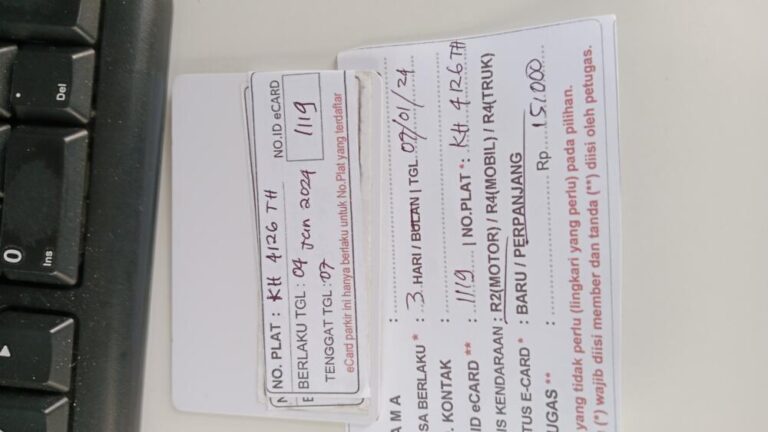 NO. PLAT : KH 4126 TH
NO.ID eCARD
BERLAKU TGL : 04 Jan 2024
1119
TENGGAT TGL : 07
eCard parkir ini hanya berlaku untuk No.Plat yang terdaftar
A M A :
SA BERLAKU * : 3 HARI / BULAN | TGL. 07/01/24
. KONTAK :
ID eCARD ** : 1119 | NO.PLAT * : KH 4126 TH
IS KENDARAAN : R2(MOTOR) / R4(MOBIL) / R4(TRUK)
TUS E-CARD * : BARU / PERPANJANG
UGAS ** : Rp 15.000
yang tidak perlu (lingkari yang perlu) pada pilihan.
(*) wajib diisi member dan tanda (**) diisi oleh petugas.
Del
.
0
Ins